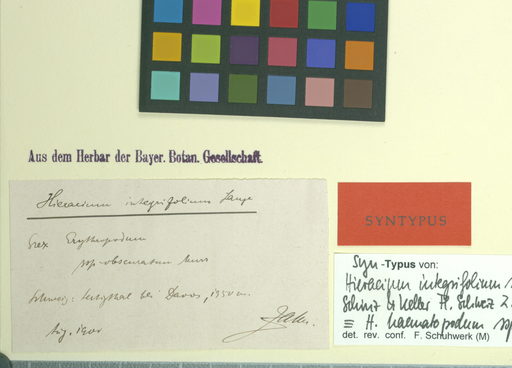 Aus dem Herbar der Bayer. Botan. Gesellschaft.
Hieracium integrifolium Lange
Grex Erythropodum
ssp. obscuratum Murr
Schweiz: Sertigthal bei Davos, 1950 m.
Aug. 1900
Zahn.
SYNTYPUS
Syn-Typus von:
Hieracium integrifolium
Schinz & Keller Fl. Schweiz 2.
≡ H. haematopodum
det. rev. conf. F. Schuhwerk (M)